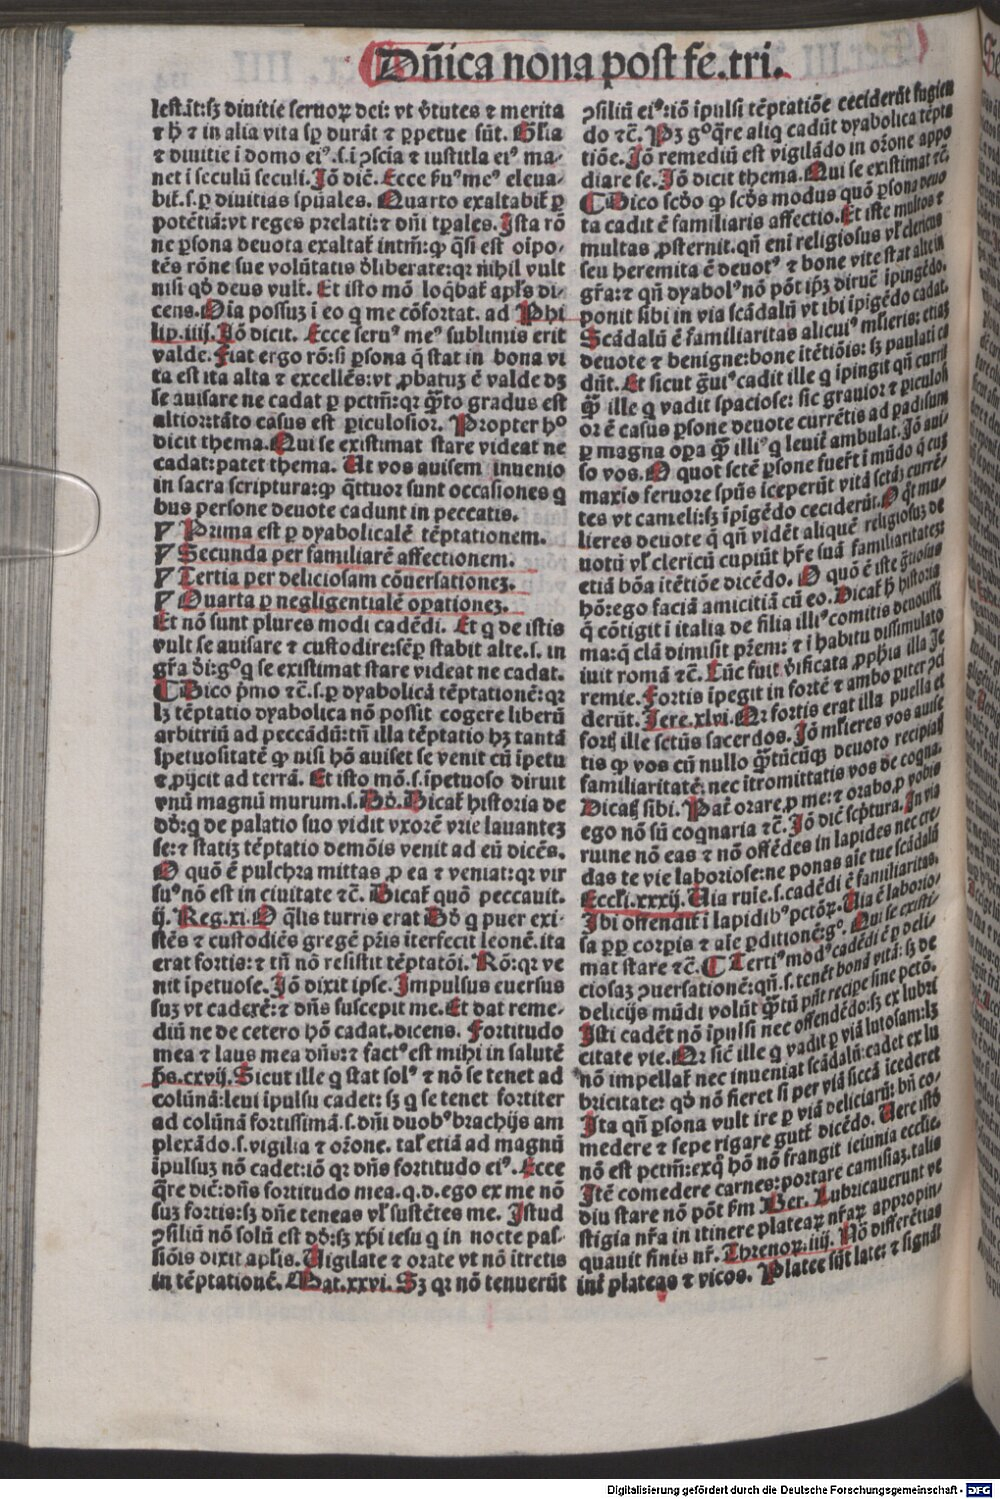 Dñica nona post fe.tri.
lest.it:sꝫ diuitie seruoꝝ dei: vt v̓tutes ⁊ merita
⁊ h̓ ⁊ in alia vita sꝑ durāt ⁊ ꝑpetue sūt. Gl̓ia
⁊ diuitie ī domo ei⁹.s.ī ꝯscīa ⁊ iustitla ei⁹ ma-
net ī seculū seculi. Jō dic̄. Ecce ẜu⁹ me⁹ eleua-
bit̄.s.ꝑ diuitias spūales. Quarto exaltabit̄ ꝑ
potētiā: vt reges prelati:⁊ dñi tꝑales. Ista rō
ne ꝑsona deuota exaltat̄ intrm̄:ꝙ q̄si est oīpo-
tēs rōne sue volūtatis d̓liberate:qꝛ nihil vult
nisi qd̓ deus vult. Et isto mō loq̄bat̄ apl̓s di-
cens. Oīa possuꝫ ī eo q me cōfortat. ad Phi
lip.iiij. Jō dicit. Ecce seru⁹ me⁹ sublimis erit
valde. Fiat ergo rō: si ꝑsona q̄ stat in bona vi
ta est ita alta ⁊ excellēs: vt ꝓbatuꝫ ē valde dꝫ
se auisare ne cadat ꝑ pctm̄: qꝛ q̄ꝫto gradus est
altior: tāto casus est ꝑiculosior. Propter h°
dicit thema. Qui se existimat stare videat ne
cadat: patet thema. At vos auisem inuenio
in sacra scriptura:ꝙ q̄ttuor sunt occasiones q
bus persone deuote cadunt in peccatis.
Prima est ꝑ dyabolicalē tēptationem.
Secunda per familiarē affectionem.
Tertia per deliciosam cōuersationeꝫ.
Quarta ꝑ negligentialē oꝑationeꝫ.
Et nō sunt plures modi cadēdi. Et q de istis
vult se auisare ⁊ custodire: sēꝑ stabit alte.s. in
gr̄a d̓i: g°q se existimat stare videat ne cadat.
Dico p̄mo ⁊c̄.s.ꝑ dyabolicā tēptationē: qꝛ
lꝫ tēptatio dyabolica nō possit cogere liberū
arbitriū ad peccādū: tn̄ illa tēptatio hꝫ tantā
īpetuositatē ꝙ nisi hō auiset se venit cū īpetu
⁊ ꝓijcit ad terrā. Et isto mō.s.īpetuoso diruit
vnū magnū murum.s. Dd̓. Dicat̄ historia de
dd̓: q de palatio suo vidit vxorē vrie lauanteꝫ
se: ⁊ statiꝫ tēptatio demōis venit ad eū dicēs.
O quō ē pulchra mittas ꝓ ea ⁊ veniat: qꝛ vir
su⁹ nō est in ciuitate ⁊c̄. Dicat̄ quō peccauit.
ij. Reg.xi. O q̄lis turris erat Dd̓ q puer exi-
stēs ⁊ custodiēs gregē pr̄is iterfecit leonē. ita
erat fortis: ⁊ tn̄ nō resistit tēptatōi. Rō: qꝛ ve
nit īpetuose. Jō dixit ipse. Impulsus euersus
suꝫ vt caderē: ⁊ dn̄s suscepit me. Et dat reme-
diū ne de cetero hō cadat. dicens. Fortitudo
mea ⁊ laus mea dñs: ⁊ fact⁹ est mihi in salutē
p̄s.cxvij. Sicut ille q stat sol⁹ ⁊ nō se tenet ad
colūnā: leui īpulsu cadet: sꝫ q se tenet fortiter
ad colūnā fortissimā.s. dn̄i duob⁹ brachijs am
plexādo.s. vigilia ⁊ or̄one. tal̓ etiā ad magnū
īpulsuꝫ nō cadet: iō qꝛ dn̄s fortitudo ei⁹. Ecce
q̄re dic̄: dn̄s fortitudo mea.q.d. ego ex me nō
suꝫ fortis: sꝫ dn̄e teneas vl̓ sustētes me. Istud
ꝯsiliū nō solū est dd̓: sꝫ xp̄i iesu q in nocte pas-
siōis dixit apl̓is. Vigilate ⁊ orate vt nō itretis
in tēptationē. Mat.xxvi. Sꝫ qꝛ nō tenuerūt
ꝯsiliū ei⁹: iō īpulsi tēptatiōe ceciderūt fugien
do ⁊c̄. Pꝫ g° q̄re aliq cadūt dyabolica tēpta
tiōe. Jō remediū est vigilādo in or̄one appo
diare se. Jō dicit thema. Qui se existimat ⁊c̄.
Dico scd̓o ꝙ scd̓s modus quō ꝑsona deuo
ta cadit ē familiaris affectio. Et iste multos ⁊
multas ꝓsternit. qn̄ eni religiosus vl̓ clericus
seu heremita ē deuot⁹ ⁊ bone vite stat alte in
gr̄a: ⁊ qn̄ dyabol⁹ nō pōt ip̄ꝫ diruē īpingēdo.
ponit sibi in via scādalū vt ibi īpigēdo cadat.
Scādalū ē familiaritas alicui⁹ mlieris: etiaꝫ
deuote ⁊ benigne: bone itētiōis: sꝫ paulati ca
dūt. Et sicut g̓ui⁹ cadit ille q īpingit qn̄ currit
q̄ꝫ ille q vadit spaciose: sic grauior ⁊ ꝑiculosi
or ē casus ꝑsone deuote currētis ad padisum
ꝑ magna oꝑa q̄ꝫ illi⁹ q leuit̄ ambulat. Jō aui-
so vos. O quot sctē ꝑsone fuer̄t ī mūdo q̄ cuꝫ
maxīo feruore spūs iceperūt vitā sctāꝫ currē-
tes vt cameli: sꝫ īpīgēdo ceciderūt. O q̄t mu-
lieres deuote q̄ qn̄ vidēt aliquē religiosuꝫ de
uotū vl̓ clericū cupiūt hr̄e suā familiaritateꝫ
etiā bōa itētiōe dicēdo. O quō ē iste g̓tiosus
hō: ego faciā amicitiā cū eo. Dicat̄ h̓ historia
q̄ cōtigit i italia de filia illi⁹ comitis deuotissi
ma: q̄ clā dimisit pr̄em: ⁊ i habitu dissimulato
iuit romā ⁊c̄. Tūc fuit v̓ificata ꝓph̄ia illa Je
remie. Fortis īpegit in fortē ⁊ ambo piter ꝯci
derūt. Jere.xlvi. Qꝛ fortis erat illa puella et
fort̄ ille sctūs sacerdos. Jō mlieres vos auise
tis ꝙ vos cū nullo q̄ꝫtūcūqꝫ deuoto recipiat̄
familiaritatē: nec itromittatis vos de cogna.
Dicat̄ sibi. Pat̄ orare ꝓ me: ⁊ orabo ꝓ vobis
ego nō sū cognaria ⁊c̄. Jō dic̄ scp̄tura. In via
ruine nō eas ⁊ nō offēdes in lapides nec cre-
das te vie laboriose: ne ponas aīe tue scādalū
Eccl̓i.xxxij. Via ruie.s. cadēdi ē familiaritas.
Ibi offendit̄ i lapidib⁹ pctōꝝ. Via ē laborio-
sa ꝑꝑ corpis ⁊ aīe ꝑditionē: g°. Qui se existi-
mat stare ⁊c̄. Terti⁹ mod⁹ cadēdi ē ꝑ deli-
ciosaꝫ ꝯuersationē: qn̄.s. tenēt bonā vitā: sꝫ de
delicijs mūdi volūt q̄ꝫtū pn̄t recipe sine pctō.
Isti cadēt nō īpulsi nec offendēdo: sꝫ ex lubri
citate vie. Qꝛ sic̄ ille q vadit ꝑ viā lutosam: lꝫ
nō impellat̄ nec inueniat scādalū: cadet ex lu
bricitate: qd̓ nō fieret si per viā siccā icederet
Ita qn̄ ꝑsona vult ire ꝑ viā deliciarū: bn̄ co-
medere ⁊ sepe rigare gutt̄ dicēdo. Vere istō
nō est pctm̄: exq̄ hō nō frangit ieiunia ecclie.
Itē comedere carnes: portare camisiaꝫ. talis
diu stare nō pōt ẜm Ber. Lubricauerunt ve
stigia nr̄a in itinere plateaꝝ nr̄aꝝ appropin-
quauit finis nr̄. Threnoꝝ.iiij. Nō differētias
int̄ plateas ⁊ vicos. Platee sūt late: ⁊ signāt
Digitalisierung gefördert durch die Deutsche Forschungsgemeinschaft - DFG